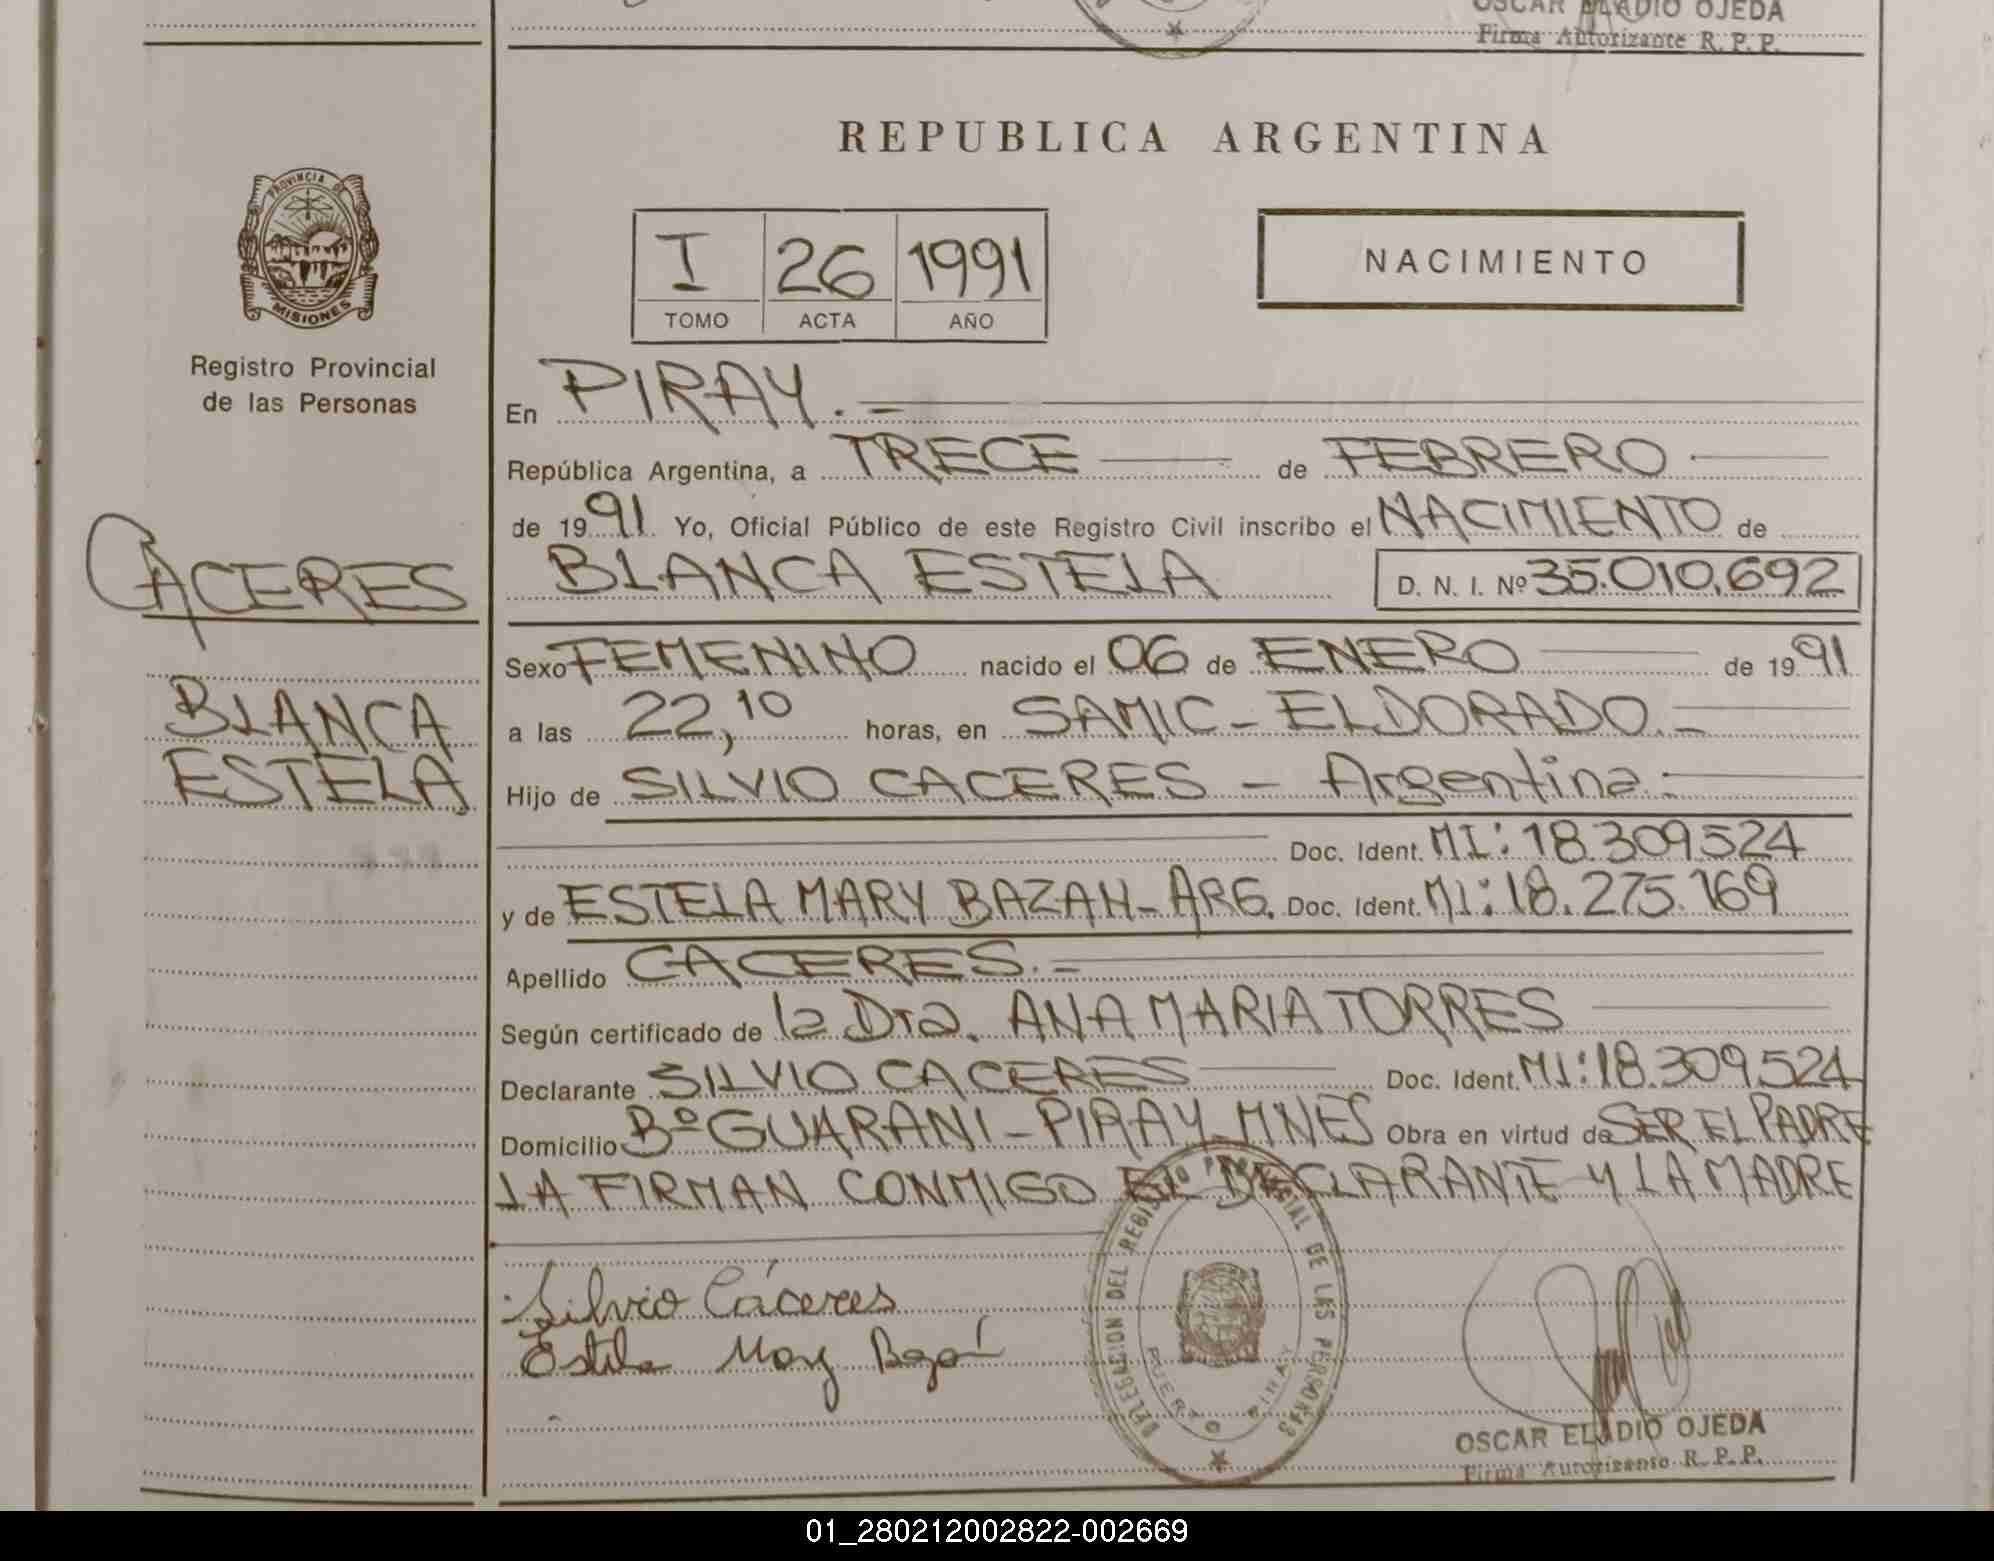 OSCAR ELADIO OJEDA
Firma Autorizante R. P. P.
REPUBLICA ARGENTINA
PROVINCIA DE
MISIONES
Registro Provincial
de las Personas
I 26 1991
TOMO ACTA AÑO
NACIMIENTO
CACERES
BLANCA
ESTELA
En PIRAY.-
República Argentina, a TRECE de FEBRERO
de 1991 Yo, Oficial Público de este Registro Civil inscribo el NACIMIENTO de
BLANCA ESTELA D. N. I. Nº 35.010.692
Sexo FEMENINO nacido el 06 de ENERO de 1991
a las 22,10 horas, en SAMIC - ELDORADO.-
Hijo de SILVIO CACERES - Argentina.-
Doc. Ident. MI: 18.309.524
y de ESTELA MARY BAZAN - ARG. Doc. Ident. MI: 18.275.169
Apellido CACERES.-
Según certificado de la Dra. ANA MARIA TORRES
Declarante SILVIO CACERES Doc. Ident. MI: 18.309.524
Domicilio Bº GUARANI - PIRAY MNES Obra en virtud de SER EL PADRE
LA FIRMAN CONMIGO EL DECLARANTE Y LA MADRE
Silvio Cáceres
Estela Mary Bazán
DELEGACION DEL REGISTRO PROVINCIAL DE LAS PERSONAS
PUERTO PIRAY
OSCAR ELADIO OJEDA
Firma Autorizante R. P. P.
01_280212002822-002669